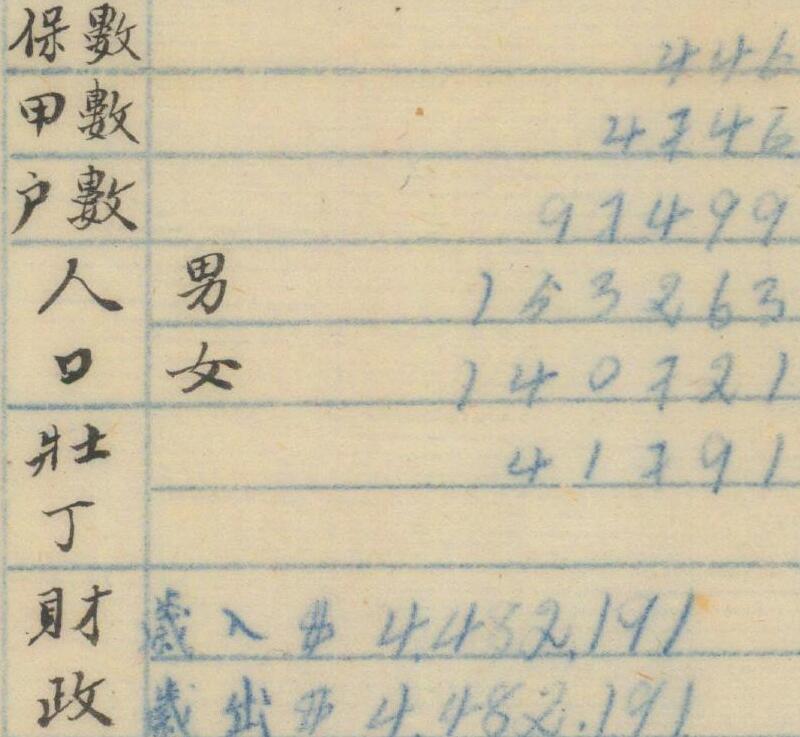 保數 446
甲數 4746
户數 97499
人口 男 153263
女 140721
壯丁 41791
財政 歲入 $ 4,482,191
歲出 $ 4,482,191